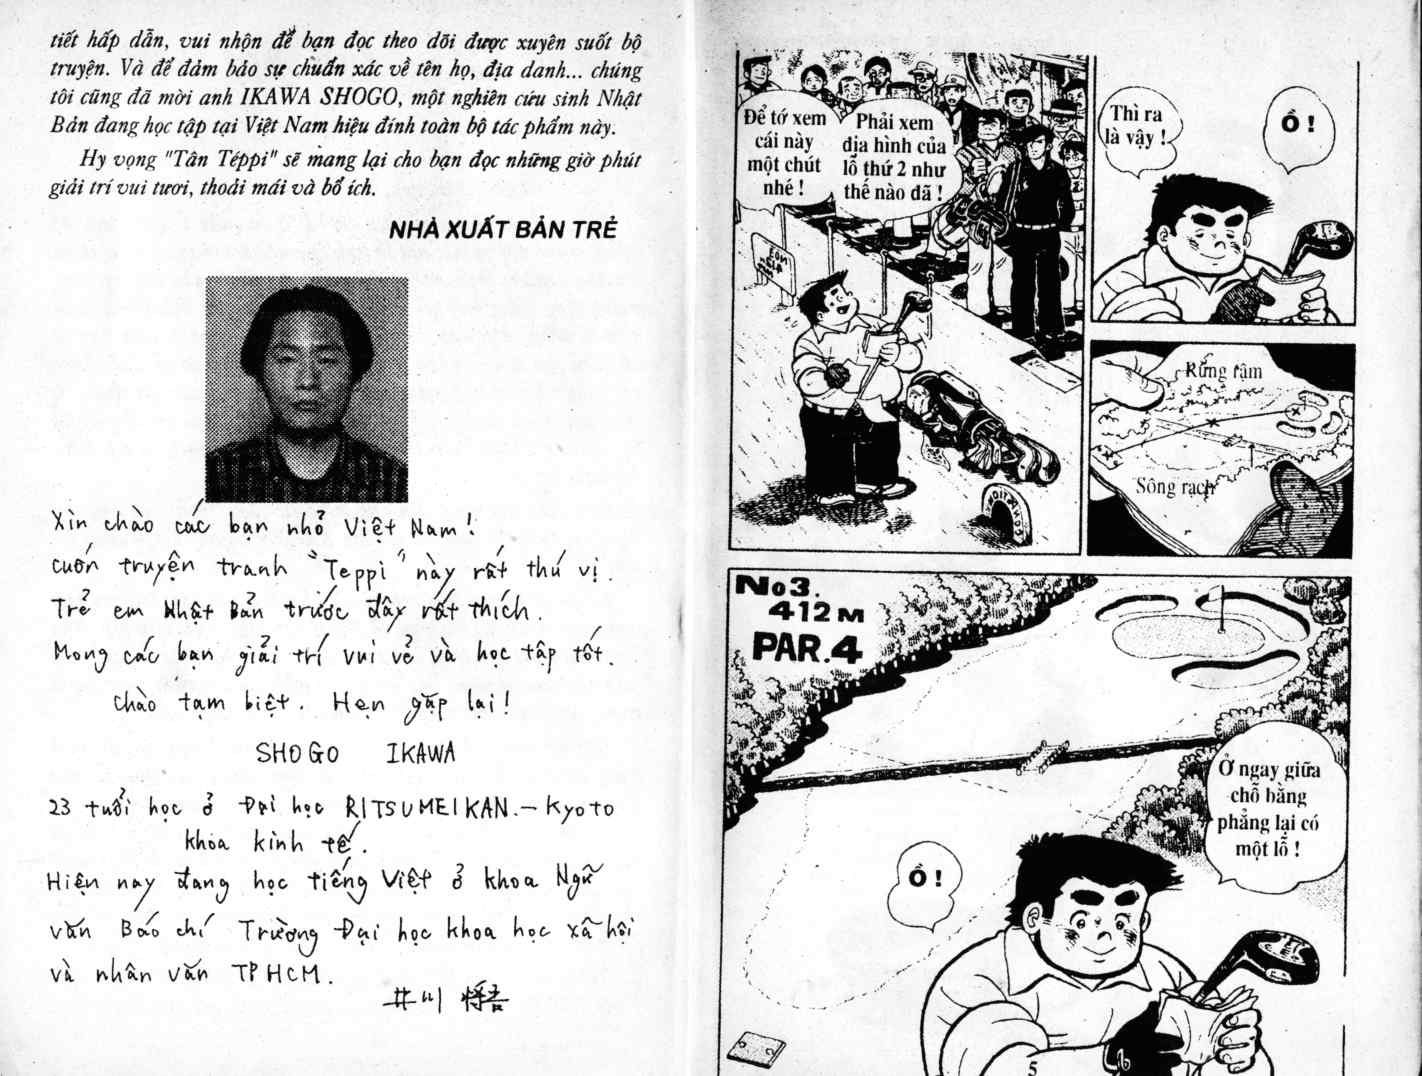 tiết hấp dẫn, vui nhộn để bạn đọc theo dõi được xuyên suốt bộ
truyện. Và để đảm bảo sự chuẩn xác về tên họ, địa danh... chúng
tôi cũng đã mời anh IKAWA SHOGO, một nghiên cứu sinh Nhật
Bản đang học tập tại Việt Nam hiệu đính toàn bộ tác phẩm này.
Hy vọng "Tân Téppi" sẽ mang lại cho bạn đọc những giờ phút
giải trí vui tươi, thoải mái và bổ ích.
NHÀ XUẤT BẢN TRẺ
Xin chào các bạn nhỏ Việt Nam!
cuốn truyện tranh "Teppi" này rất thú vị.
Trẻ em Nhật Bản trước đây rất thích.
Mong các bạn giải trí vui vẻ và học tập tốt.
chào tạm biệt. Hẹn gặp lại!
SHOGO IKAWA
23 tuổi học ở Đại học RITSUMEIKAN.- Kyoto
khoa kinh tế.
Hiện nay đang học tiếng Việt ở khoa Ngữ
văn Báo chí Trường Đại học khoa học xã hội
và nhân văn TPHCM.
井川 将吾
Để tớ xem
cái này
một chút
nhé !
Phải xem
địa hình của
lỗ thứ 2 như
thế nào đã !
Thì ra
là vậy !
Ồ !
Rừng rậm
Sông rạch
No3.
412M
PAR.4
Ở ngay giữa
chỗ bằng
phẳng lại có
một lỗ !
Ồ !
5